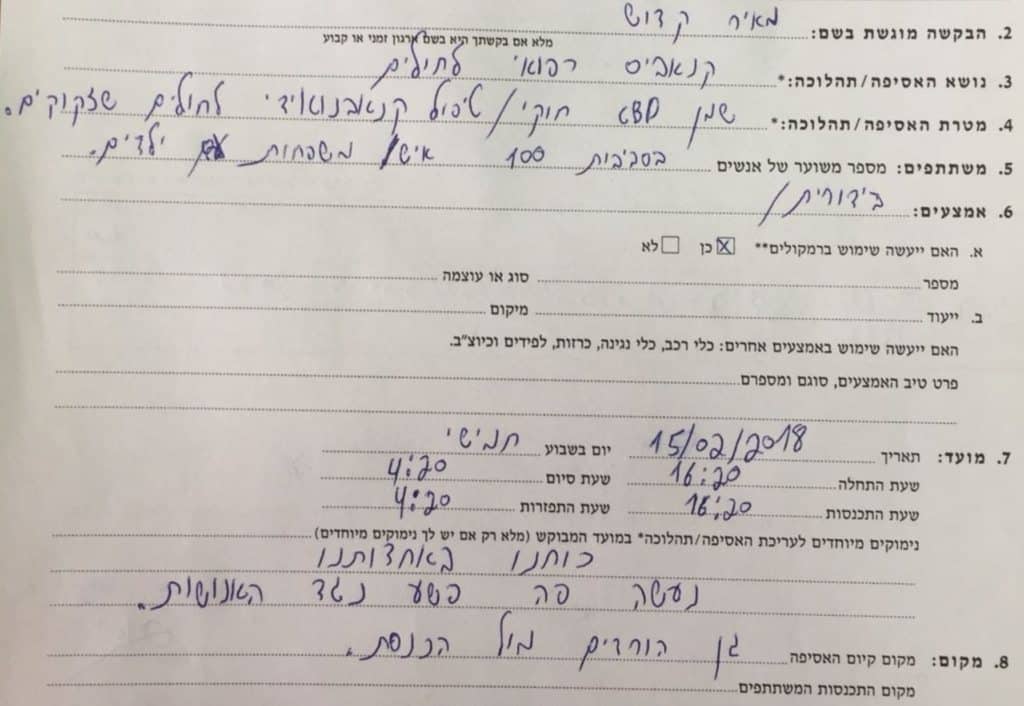 2. הבקשה מוגשת בשם: מאיר קדוש
מלא אם בקשתך היא בשם ארגון זמני או קבוע
3. נושא האסיפה/תהלוכה:* קנאביס רפואי לחולים
4. מטרת האסיפה/תהלוכה:* שמן CBD חוקי/ טיפול קנאבנואידי לחולים שזקוקים.
5. משתתפים: מספר משוער של אנשים בסביבות 100 איש/ משפחות עם ילדים.
6. אמצעים: בידורית/
א. האם ייעשה שימוש ברמקולים** כן לא
מספר סוג או עוצמה
ב. ייעוד מיקום
האם ייעשה שימוש באמצעים אחרים: כלי רכב, כלי נגינה, כרזות, לפידים וכיוצ"ב.
פרט טיב האמצעים, סוגם ומספרם
7. מועד: תאריך 15/02/2018 יום בשבוע חמישי
שעת התחלה 16:20 שעת סיום 4:20
שעת התכנסות 16:20 שעת התפזרות 4:20
נימוקים מיוחדים לעריכת האסיפה/תהלוכה* במועד המבוקש (מלא רק אם יש לך נימוקים מיוחדים)
כוחנו באחדותנו
נעשה פה פשע נגד האנושות.
8. מקום: מקום קיום האסיפה גן הורדים מול הכנסת.
מקום התכנסות המשתתפים